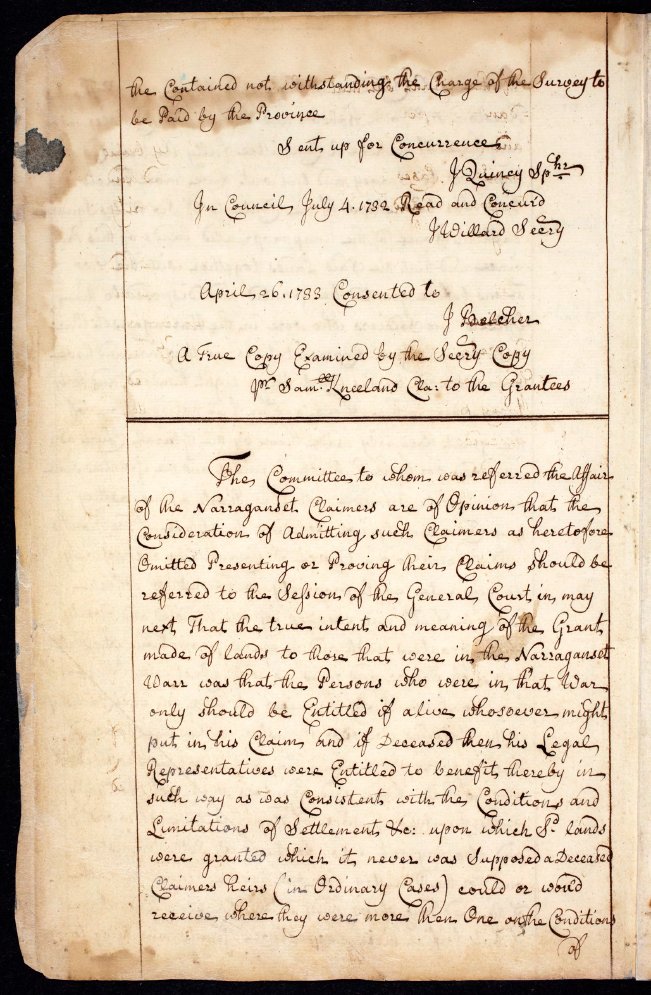 the Contained not withstanding the Charge of the Survey to
be Paid by the Province
Sent up for Concurrence
J Quincy Spkr
In Council July 4. 1732 Read and Concur'd
J Willard Secry
April 26. 1733 Consented to
J Belcher
A True Copy Examined by the Secry Copy
pr Samll Kneeland Clar to the Grantees
The Committee to whom was referred the Affair
of the Narraganset Claimers are of Opinion that the
Consideration of Admitting such Claimers as heretofore
Omitted Presenting or Proving their Claims should be
referred to the Session of the General Court in may
next That the true intent and meaning of the Grant
made of lands to those that were in the Narraganset
Warr was that the Persons who were in that War
only should be Entitled if alive whosoever might
put in his Claim and if Deceased then his Legal
Representatives were Entitled to benefit thereby in
such way as was Consistent with the Conditions and
Limitations of Settlement &c: upon which Sd lands
were granted which it never was Supposed a Deceased
Claimers heirs (in Ordinary Cases) could or would
receive where they were more then One on the Conditions
of